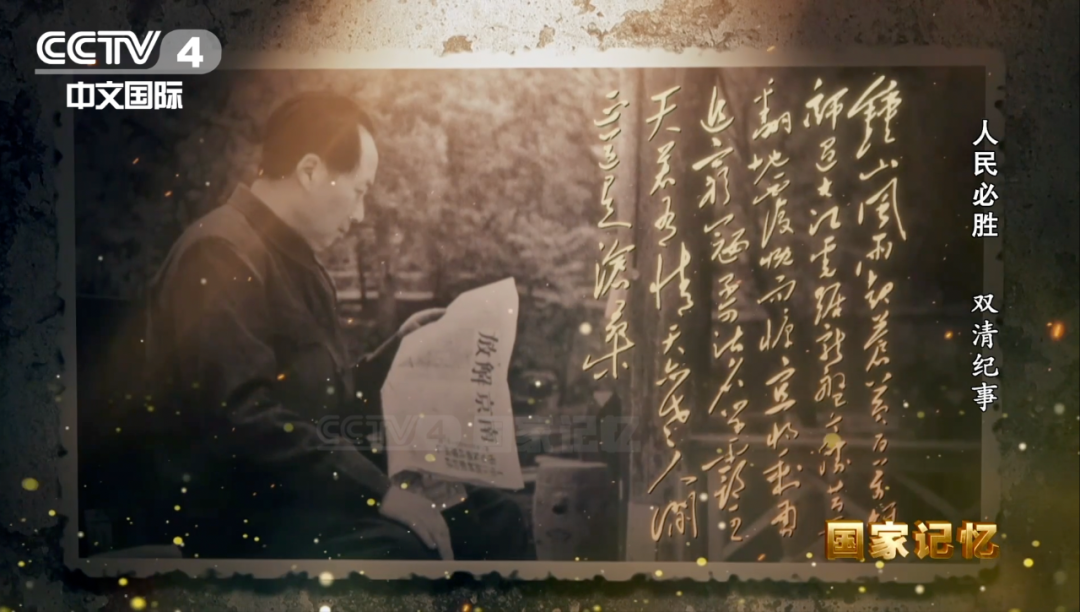 CCTV 4
中文国际
人民必胜 双清纪事
鍾山风雨起苍黄百万雄
师过大江虎踞龙盘今胜昔天
翻地覆慨而慷宜将剩勇
追穷寇不可沽名学霸王
天若有情天亦老人间
正道是滄桑
放解京南
CCTV 4 国家记忆
国家记忆